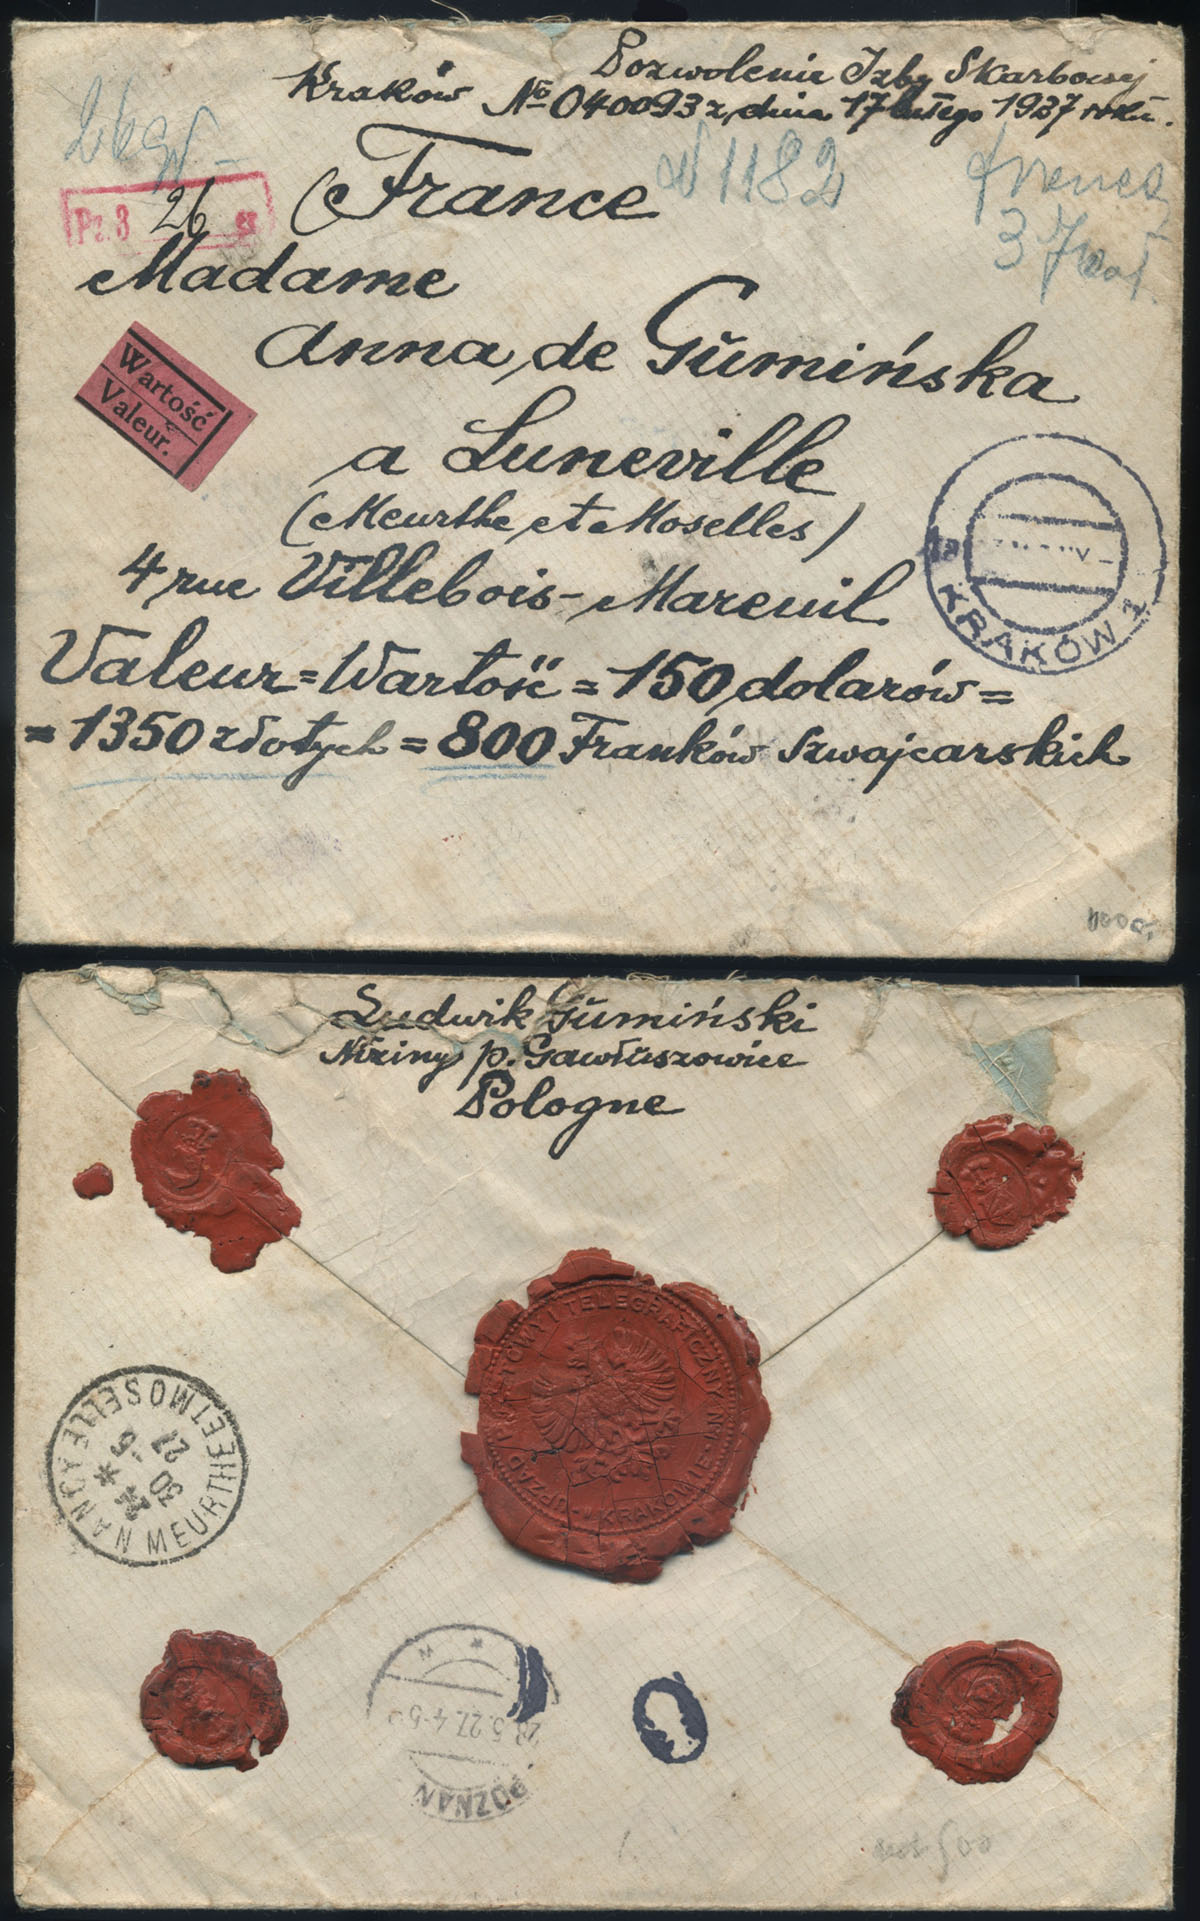 Pozwolenie Izby Skarbowej
Kraków No 040093 z dnia 17 lutego 1927 roku.
26 gr
N 1182
Pz. 3 26 gr
France
Madame
Anna de Gumińska
a Luneville
(Meurthe et Moselles)
4 rue Villebois-Mareuil
Wartość
Valeur.
KRAKÓW 1
Valeur = Wartość = 150 dolarów =
= 1350 złotych = 800 Franków Szwajcarskich
Ludwik Gumiński
Niziny p. Gawłuszowice
Pologne
URZĄD POCZTOWY I TELEGRAFICZNY
KRAKOWIE
NANCY
MEURTHE ET MOSELLE
30
5
27
28.5.27.4-5
POZNAŃ